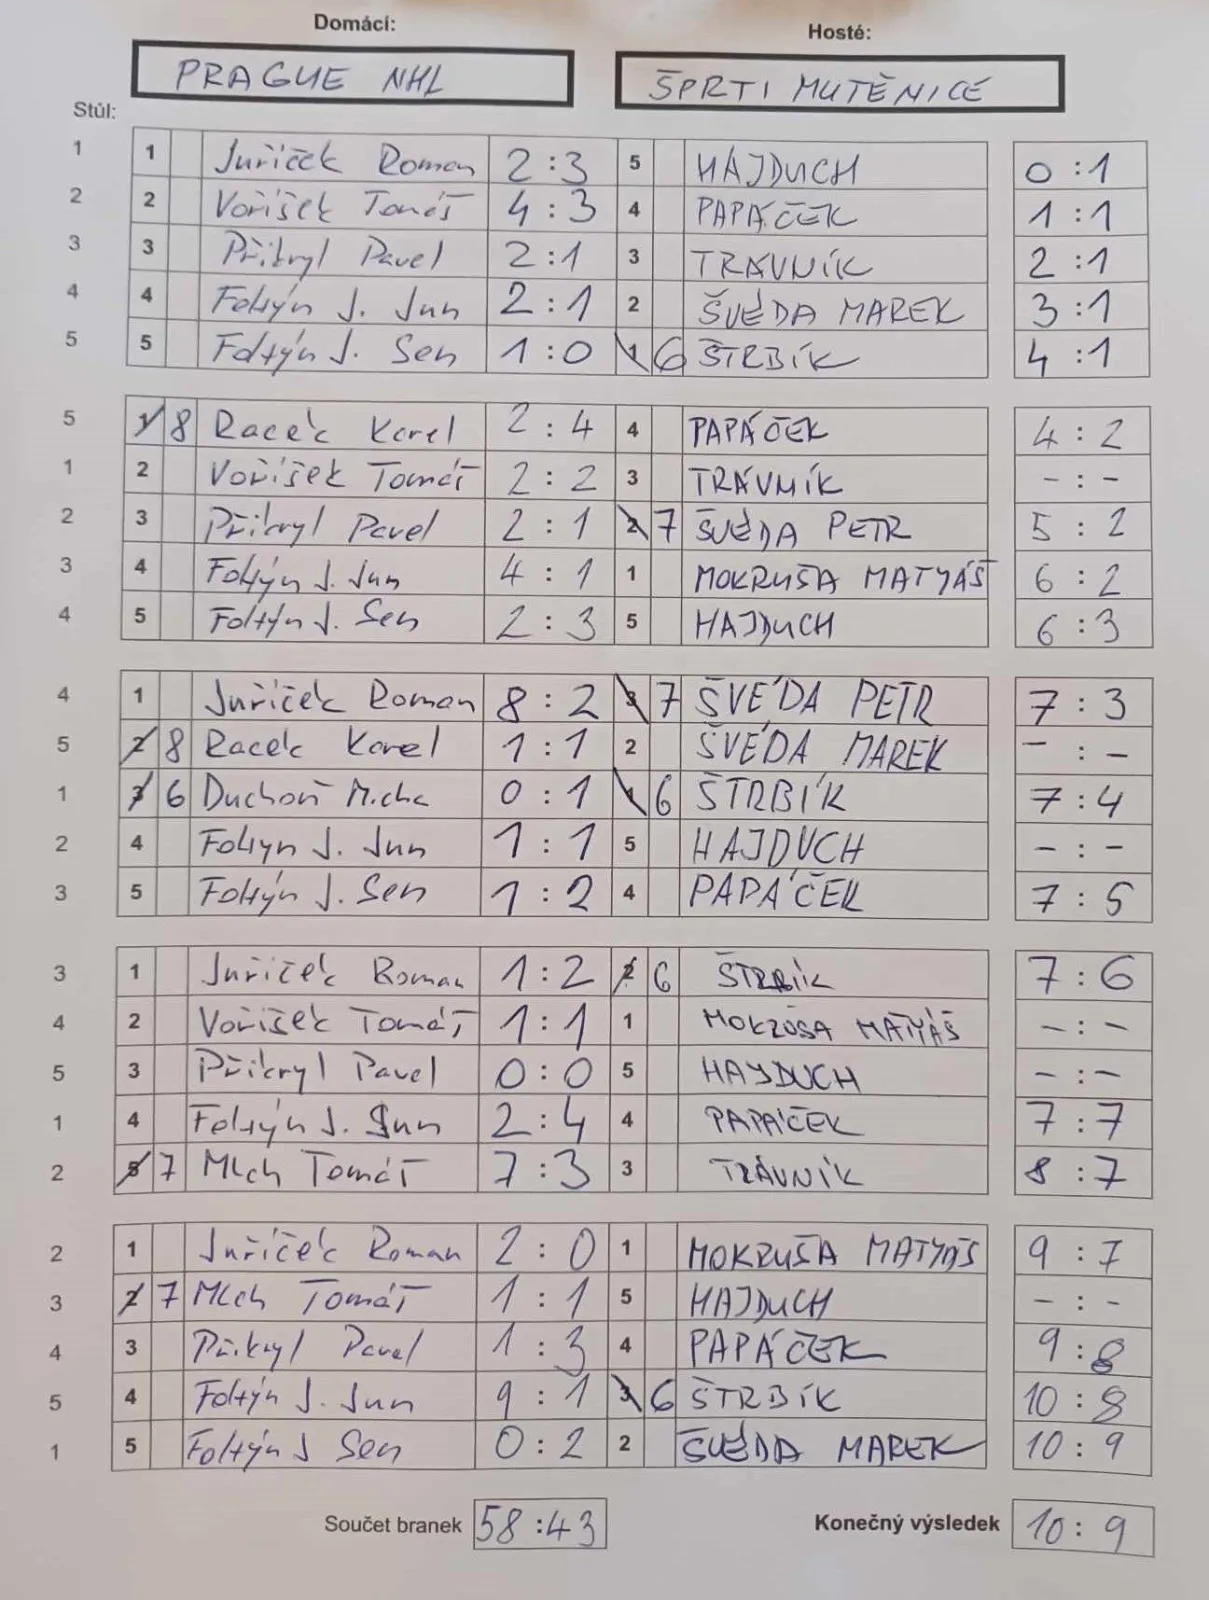 Domácí: Hosté:
PRAGUE NHL ŠPRTI MUTĚNICE
Stůl:
1 1 Juříček Roman 2:3 5 HAJDUCH 0:1
2 2 Voříšek Tomáš 4:3 4 PAPÁČEK 1:1
3 3 Přikryl Pavel 2:1 3 TRÁVNÍK 2:1
4 4 Foltýn J. Jun 2:1 2 ŠVÉDA MAREK 3:1
5 5 Foltýn J. Sen 1:0 1 6 ŠTRBÍK 4:1
5 1 8 Racek Karel 2:4 4 PAPÁČEK 4:2
1 2 Voříšek Tomáš 2:2 3 TRÁVNÍK -:-
2 3 Přikryl Pavel 2:1 2 7 ŠVÉDA PETR 5:2
3 4 Foltýn J. Jun 4:1 1 MOKRUŠA MATYÁŠ 6:2
4 5 Foltýn J. Sen 2:3 5 HAJDUCH 6:3
4 1 Juříček Roman 8:2 3 7 ŠVÉDA PETR 7:3
5 2 8 Racek Karel 1:1 2 ŠVÉDA MAREK -:-
1 3 6 Duchoň Micha 0:1 1 6 ŠTRBÍK 7:4
2 4 Foltyn J. Jun 1:1 5 HAJDUCH -:-
3 5 Foltýn J. Sen 1:2 4 PAPÁČEK 7:5
3 1 Juříček Roman 1:2 2 6 ŠTRBÍK 7:6
4 2 Voříšek Tomáš 1:1 1 MOKRUŠA MATYÁŠ -:-
5 3 Přikryl Pavel 0:0 5 HAJDUCH -:-
1 4 Foltýn J. Jun 2:4 4 PAPÁČEK 7:7
2 5 7 Mlch Tomáš 7:3 3 TRÁVNÍK 8:7
2 1 Juříček Roman 2:0 1 MOKRUŠA MATYÁŠ 9:7
3 2 7 Mlch Tomáš 1:1 5 HAJDUCH -:-
4 3 Přikryl Pavel 1:3 4 PAPÁČEK 9:8
5 4 Foltýn J. Jun 9:1 3 6 ŠTRBÍK 10:8
1 5 Foltýn J Sen 0:2 2 ŠVÉDA MAREK 10:9
Součet branek 58:43 Konečný výsledek 10:9